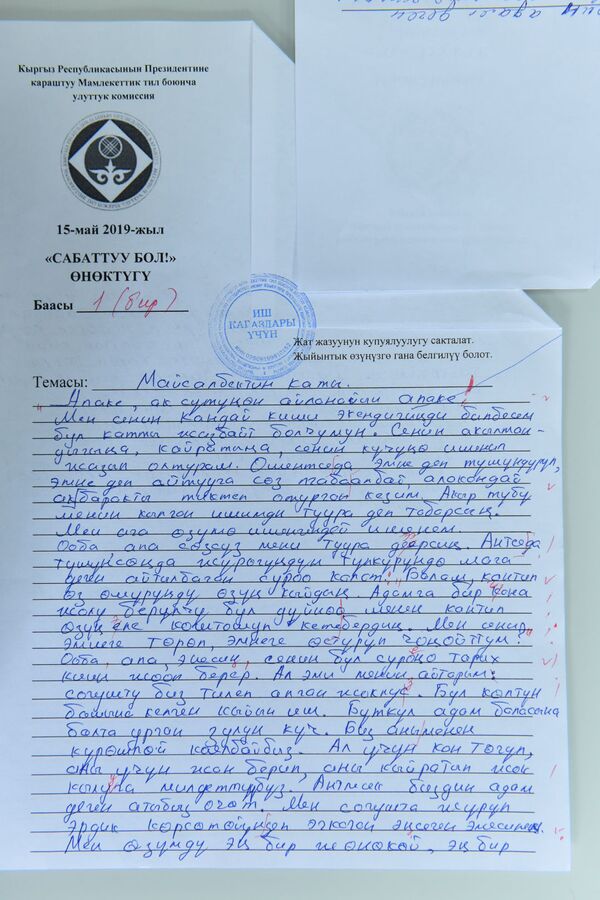 Кыргыз Республикасынын Президентине
караштуу Мамлекеттик тил боюнча
улуттук комиссия
15-май 2019-жыл
«САБАТТУУ БОЛ!»
ӨНӨКТҮГҮ
Баасы 1 (бир)
ИШ
КАГАЗДАРЫ
ҮЧҮН
Жат жазуунун купуялуулугу сакталат.
Жыйынтык өзүңүзгө гана белгилүү болот.
Темасы: Майсалбектин каты.
Апаке, ак сүтүңөн айланайын апаке!
Мен сенин кандай киши экендигиңди билбесем
бул катты жазбайт болчумун. Сенин акылман-
дыгыңа, кайратыңа, сенин күчүңө ишенип
жазып олтурам. Ошентседа эмне деп түшүндүрүп,
эмне деп айтууга сөз табаалбай, алакандай
ак баракты тиктеп отурган кезим. Акыр түбү
менин кылган ишимди туура деп табарсың.
Мен ага өзүмө ишенгендей ишенем.
Ооба, апа сөзсүз мени туура дээрсиң. Антседа
түшүнсөңда жүрөгүңдүн түпкүрүндө мага
деген айтылбаган суроо калат. Балам, кантип
өз өмүрүңдү өзүң кыйдың. Адамга бир гана
жолу берилчү бул дүйнөө менен кантип
өзүң эле коштошуп кетебердиң. Мен сени
эмнеге төрөп, эмнеге өстүрүп чоңойттум?
Ооба, апа, энесиң, сенин бул сурооңо тарых
кийин жооп берер. Ал эми менин айтарым:
согушту биз тилеп алган жокпуз. Бул көптүн
башына келген кыйын иш. Бүткүл адам баласына
балта урган зулум күч. Биз аны менен
күрөшпөй калбайбыз. Ал үчүн кан төгүп,
аны үчүн жан берип, аны кыйратып жок
кылууга милдеттүүбүз. Антпесек биздин адам
деген атыбыз өчөт. Мен согушта жүрүп
эрдик көрсөтөйүн деп
Мен өзүмдү эң бир жөнөкөй, эң бир